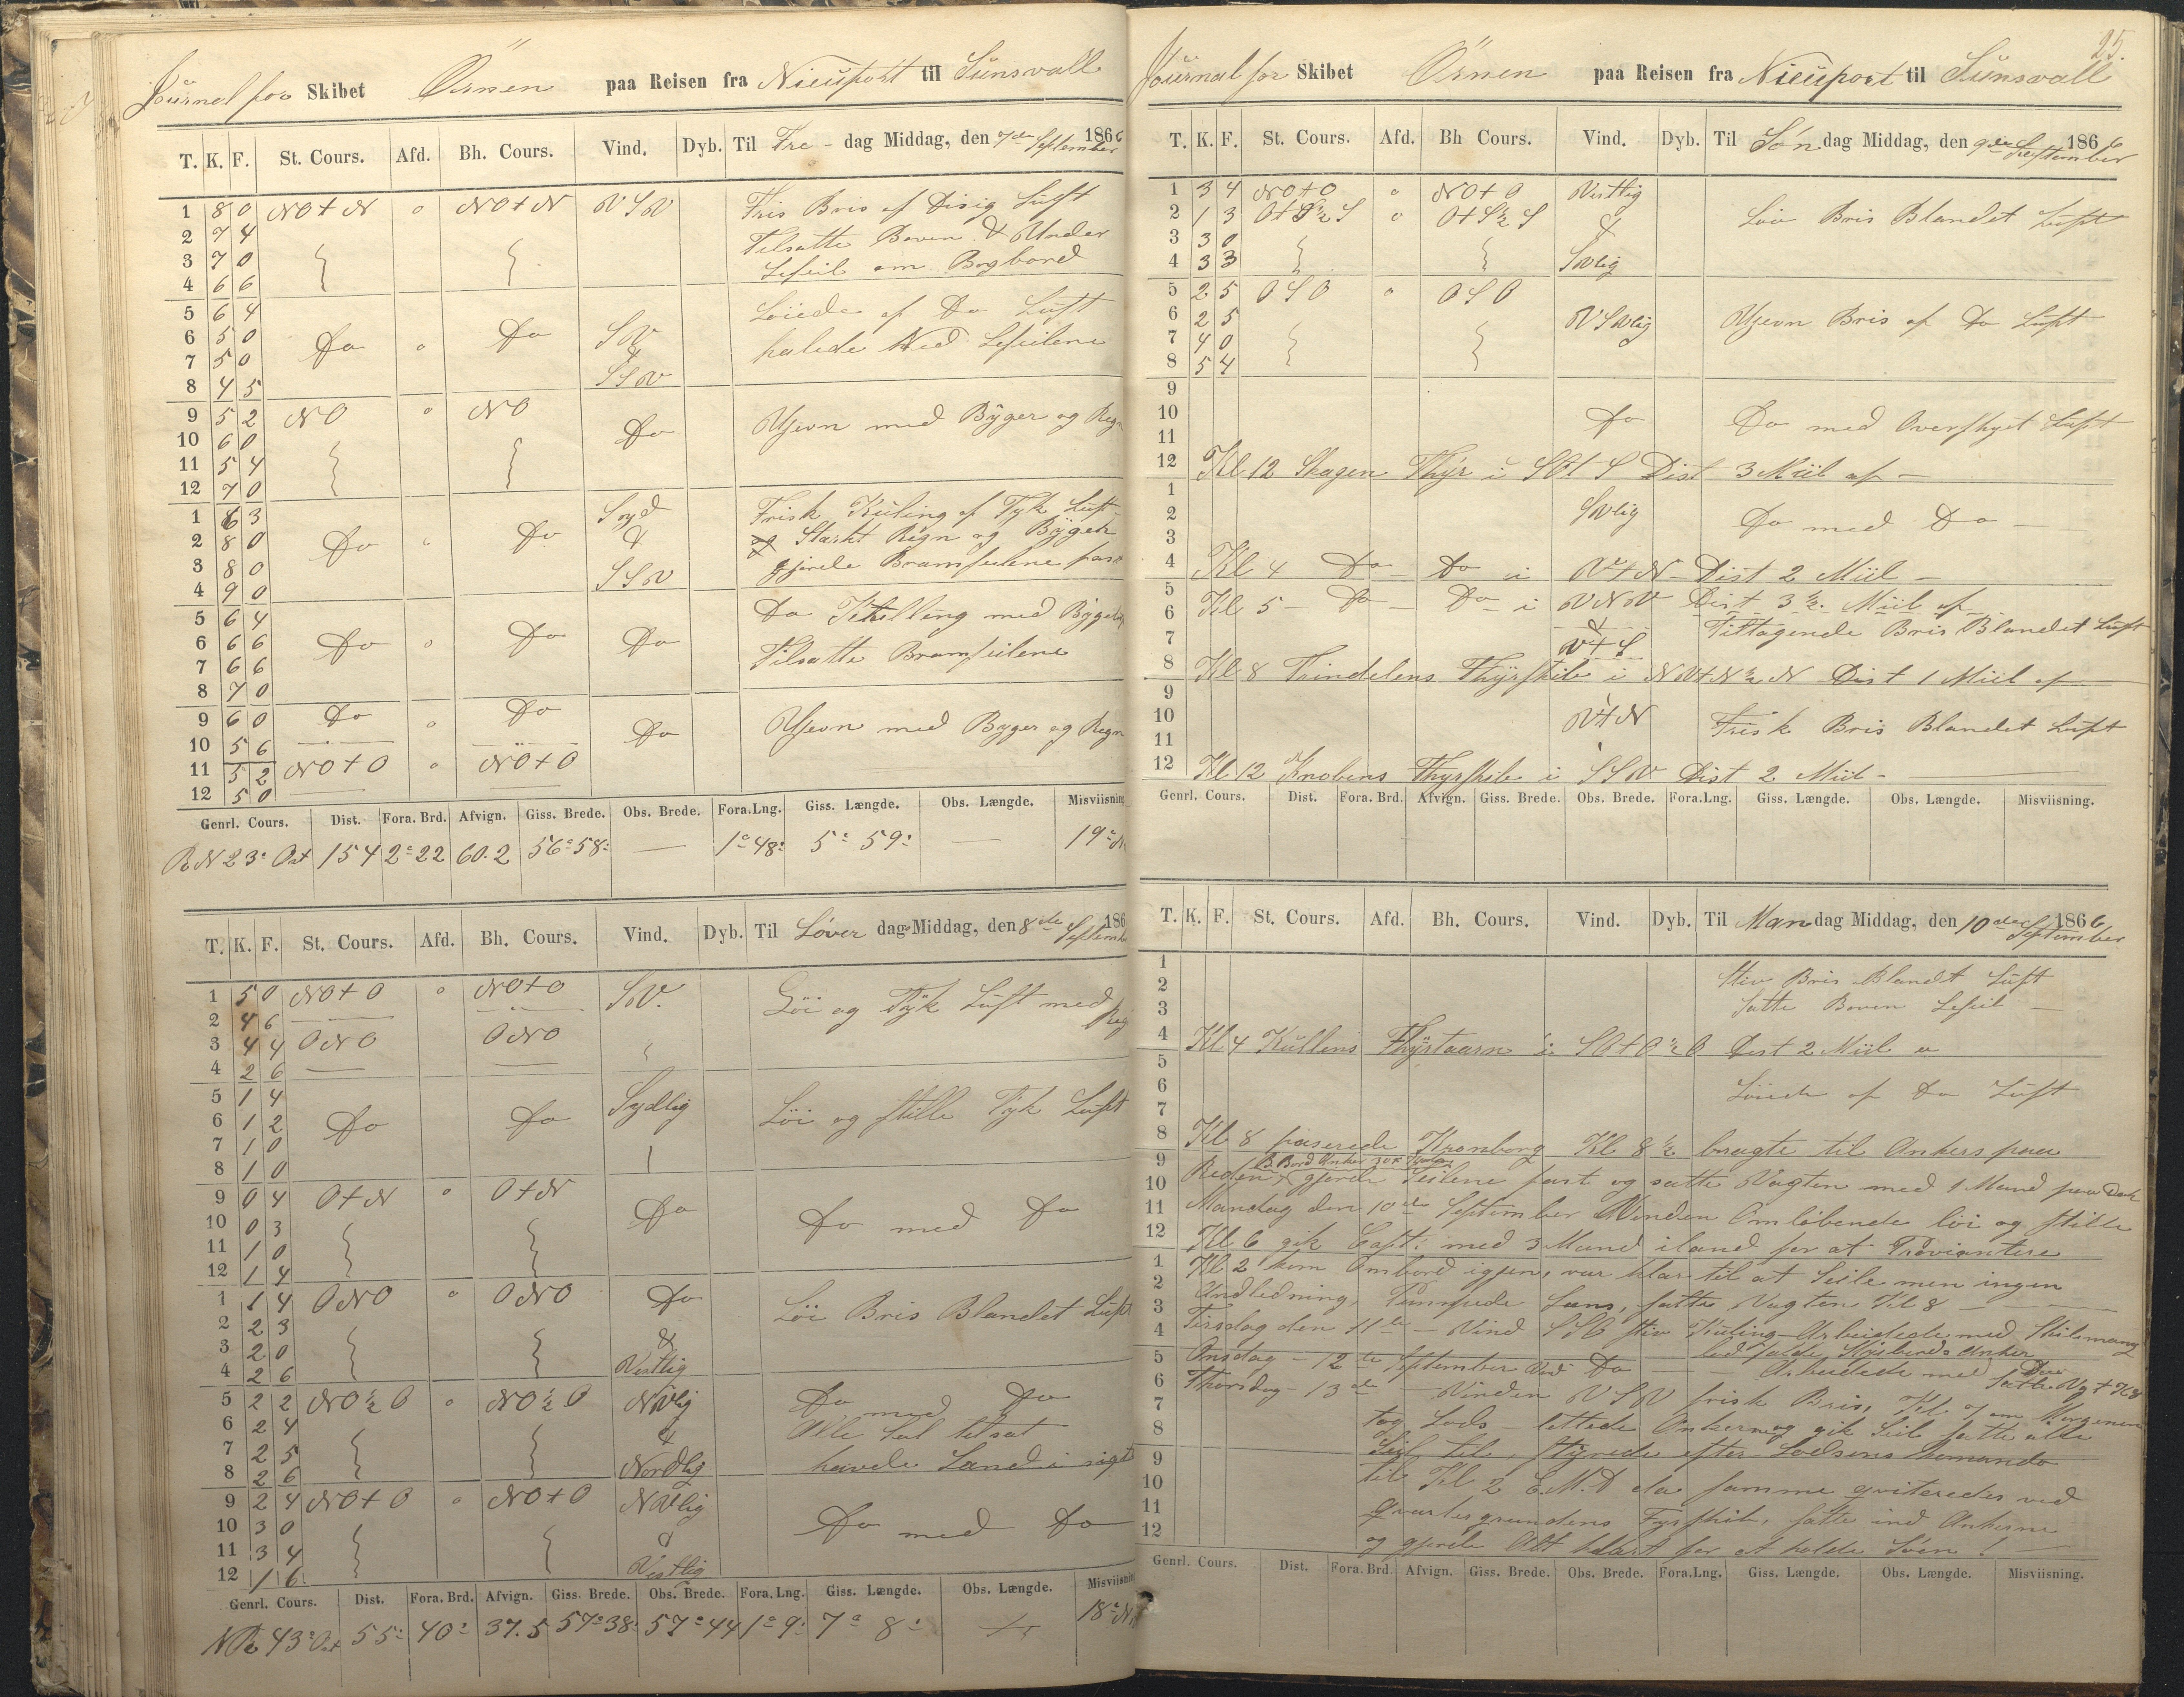 Journal for Skibet Örnen paa Reisen fra Nieuport til Sunsvall
T. K. F. St. Cours. Afd. Bh. Cours. Vind. Dyb. Til Fre - dag Middag, den 7de September 1866
1 8 0 NO t N " NO t N VSV Fris Bris af Disig Luft
2 7 4 Tilsatte Boven & Under
3 7 0 Leseil om Bagbord
4 6 6
5 6 4 Løiede af Do Luft
6 5 0 Do " Do SV
7 5 0 & halede Ned Leseilene
8 4 5 SSV
9 5 2 NO " NO Do Ujevn med Byger og Regn
10 6 0
11 5 4
12 7 0
1 6 3 Syd Frisk Kuling af Tyk Luft
2 8 0 Do " Do & og Stærkt Regn og Byger
3 8 0 SSV gjorde Bramseilene fast
4 9 0
5 6 4 Do med
6 6 6 Do " Do Do
7 6 6 Tilsatte Bramseilene
8 7 0
9 6 0 Do " Do Do Ujevn med Byger og Regn
10 5 6
11 5 2 NO t O " NO t O
12 5 0
Genrl. Cours. Dist. Fora. Brd. Afvign. Giss. Brede. Obs. Brede. Fora. Lng. Giss. Længde. Obs. Længde. Misviisning
N 23° Ost 154 2° 22 60.2 56° 58' — 1° 48' 5° 59' — 19°
T. K. F. St. Cours. Afd. Bh. Cours. Vind. Dyb. Til Löver dag Middag, den 8de September 186
1 5 0 NO t O " NO t O SV. Löi og Tyk Luft med Reg
2 4 6
3 4 4 ONO ONO
4 2 6
5 1 4 Sydlig Löi og stille Tyk Luft
6 1 2 Do Do
7 1 0
8 1 0
9 0 4 O t N " O t N Do Do med Do
10 0 3
11 1 0
12 1 4
1 1 4 ONO " ONO Do Löi Bris Blandet Luft
2 2 3 &
3 2 0 Vestlig
4 2 6
5 2 2 NO ½ O " NO ½ O NVlig Do med Do
6 2 4 & Alle Seil tilsat
7 2 5 Nordlig havde Land i sigte
8 2 6
9 2 4 NO t O " NO t O NVlig Do med Do
10 3 0 &
11 3 4 Vestlig
12 1 6
Genrl. Cours. Dist. Fora. Brd. Afvign. Giss. Brede. Obs. Brede. Fora. Lng. Giss. Længde. Obs. Længde. Misviisning
43° Ost 55' 40' 37.5 57° 38' 57° 44 1° 9' 7° 8' 18°
25.
Journal for Skibet Örnen paa Reisen fra Nieuport til Sunsvall
T. K. F. St. Cours. Afd. Bh Cours. Vind. Dyb. Til Søn dag Middag, den 9de September 1866
1 3 4 NO t O " NO t O Vestlig
2 1 3 O t S ½ S " O t S ½ S & Löi Bris Blandet Luft
3 3 0
4 3 3 SVlig
5 2 5 OSO " OSO
6 2 5 VSVlig Ujevn Bris af Do Luft
7 4 0
8 5 4
9
10 Do Do med Overskyet Luft
11
12 Kl 12 Skagen Fhyr i SO t S Dist 3 Miil af —
1
2 SVlig Do med Do —
3
4 Kl 4 Do — Do i V t N — Dist 2 Miil —
5 Kl 5 — Do — Do i VNV Dist 3 ½ Miil af
6 & Tiltagende Bris Blandet Luft
7 V t S
8 Kl 8 Trindelens Fhyrskib i NV t N ½ N Dist 1 Miil af
9
10 V t N Frisk Bris Blandet Luft
11
12 Kl 12 Knobens Fhyrskib i SSV Dist 2 Miil —
Genrl. Cours. Dist. Fora. Brd. Afvign. Giss. Brede. Obs. Brede. Fora. Lng. Giss. Længde. Obs. Længde. Misviisning.
T. K. F. St. Cours. Afd. Bh. Cours. Vind. Dyb. Til Man dag Middag, den 10de September 1866
1 Stiv Bris Blandt Luft
2 Satte Boven Leseil —
3
4 Kl 4 Kullens Fhyrtaarn i SO t O ½ O Dist 2 Miil
5
6 Løiede af Do Luft
7
8 Kl 8 paserede Kronborg Kl 8 ½ bragte til Ankers paa
9 B. Bord Anker 30
10 Reden gjorde Seilene fast og satte Vagten med 1 Mand paa Dæk
11 Mandag den 10de September Vinden Omløbende löi og stille
12 Kl 6 gik Capt: med 3 Mand iland for at Proviantere
1 Kl 2 kom Ombord igjen, var klar til at Seile men ingen
2 Andledning, Pumpede Læns, satte Vagten Kl 8 —
3 Tirsdag den 11te — Vind SSO stiv Kuling — Arbeidede med
4 lod falde Styrbords Anker
5 Onsdag — 12te September Vind Do — Arbeidede med Div
6 Thorsdag — 13de — Vinden VSV frisk Bris, Kl om Morgenen
7 tog Lods — lettede Ankerne og gik Seil satte alle
8 Seil til, styrede efter Lodsens Komando
9 til Kl 2 E.M.D da samme qviteredes ved
10 grundens Fyrskib, satte ind Ankerne
11 og gjorde Alt klart for at holde Søen! —
12
Genrl. Cours. Dist. Fora. Brd. Afvign. Giss. Brede. Obs. Brede. Fora. Lng. Giss. Længde. Obs. Længde. Misviisning.